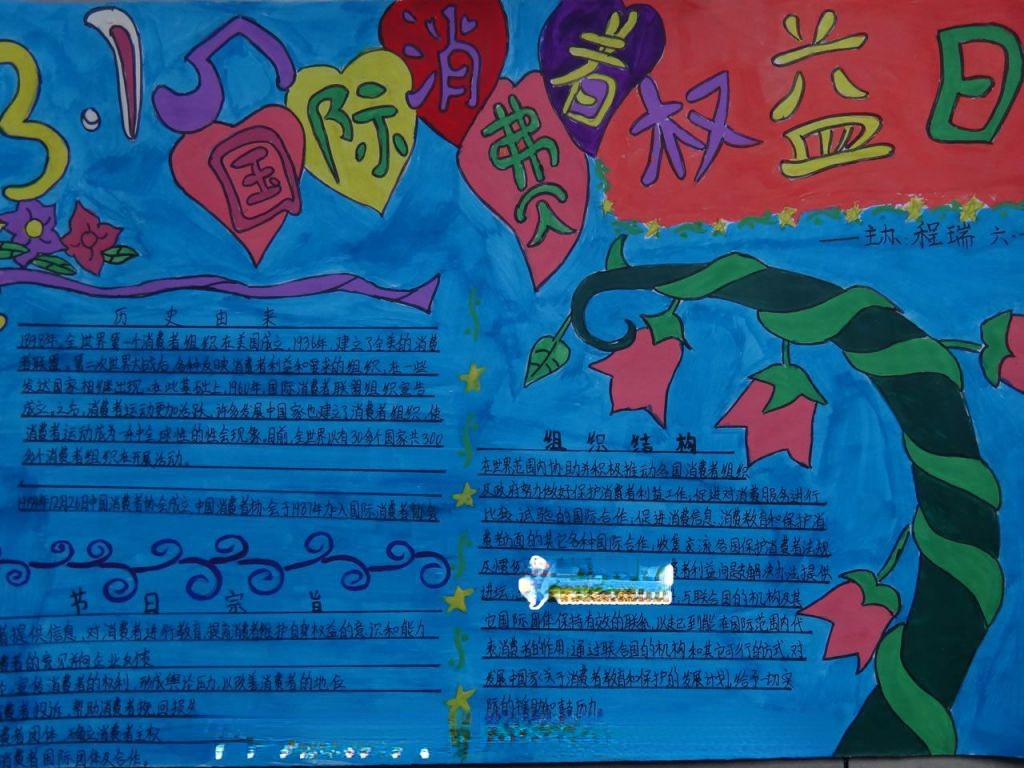 3.15国际消费者权益日
——主办:程瑞 六·一
历史由来
1898年,全世界第一个消费者组织在美国成立,1936年,建立了全美的消费
者联盟。第二次世界大战后,各种反映消费者利益和要求的组织,在一些
发达国家相继出现。在此基础上,1960年,国际消费者联盟组织宣告
成立。之后,消费者运动更加活跃,许多发展中国家也建立了消费者组织,使
消费者运动成为一种全球性的社会现象。目前,全世界以有30多个国家共300
多个消费者组织在开展活动。
12月26日中国消费者协会成立 中国消费者协会于1987年加入国际消费者
节日宗旨
者提供信息,对消费者进行教育,提高消费者维护自身权益的意识和能力
者的意见并向企业反馈
宣传消费者的权利,形成舆论压力,以改善消费者的地位
者投诉,帮助消费者挽回损失
费者团体,确立消费者主权
消费者国际团体及合作。
组织结构
在世界范围内协助并积极推动各国消费者组织
及政府努力做好保护消费者利益工作,促进对消费服务进行
比较试验的国际合作,促进消费信息、消费教育和保护消
费者方面的其它各种国际合作,收集交流各国保护消费者法规
及惯 者利益问题和解决办法提供
讲坛, 与联合国的机构及其
它国际团体保持有效的联系,以起到能在国际范围内代
表消费者的作用,通过联合国的机构和其它可行的方式,对
发展中国家关于消费者教育和保护的发展计划,给予一切实
际的援助和鼓励。